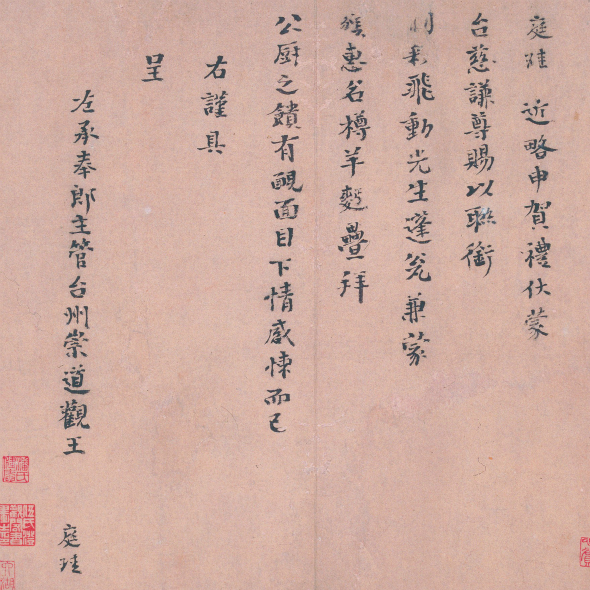 庭珪 近略申賀禮伏蒙
台慈謙尊賜以聯銜
飛動光生蓬瓮兼蒙
惠名樽羊麪疊拜
公厨之饋有靦面目下情感悚而已
右謹具
呈
左承奉郎主管台州崇道觀王
庭珪